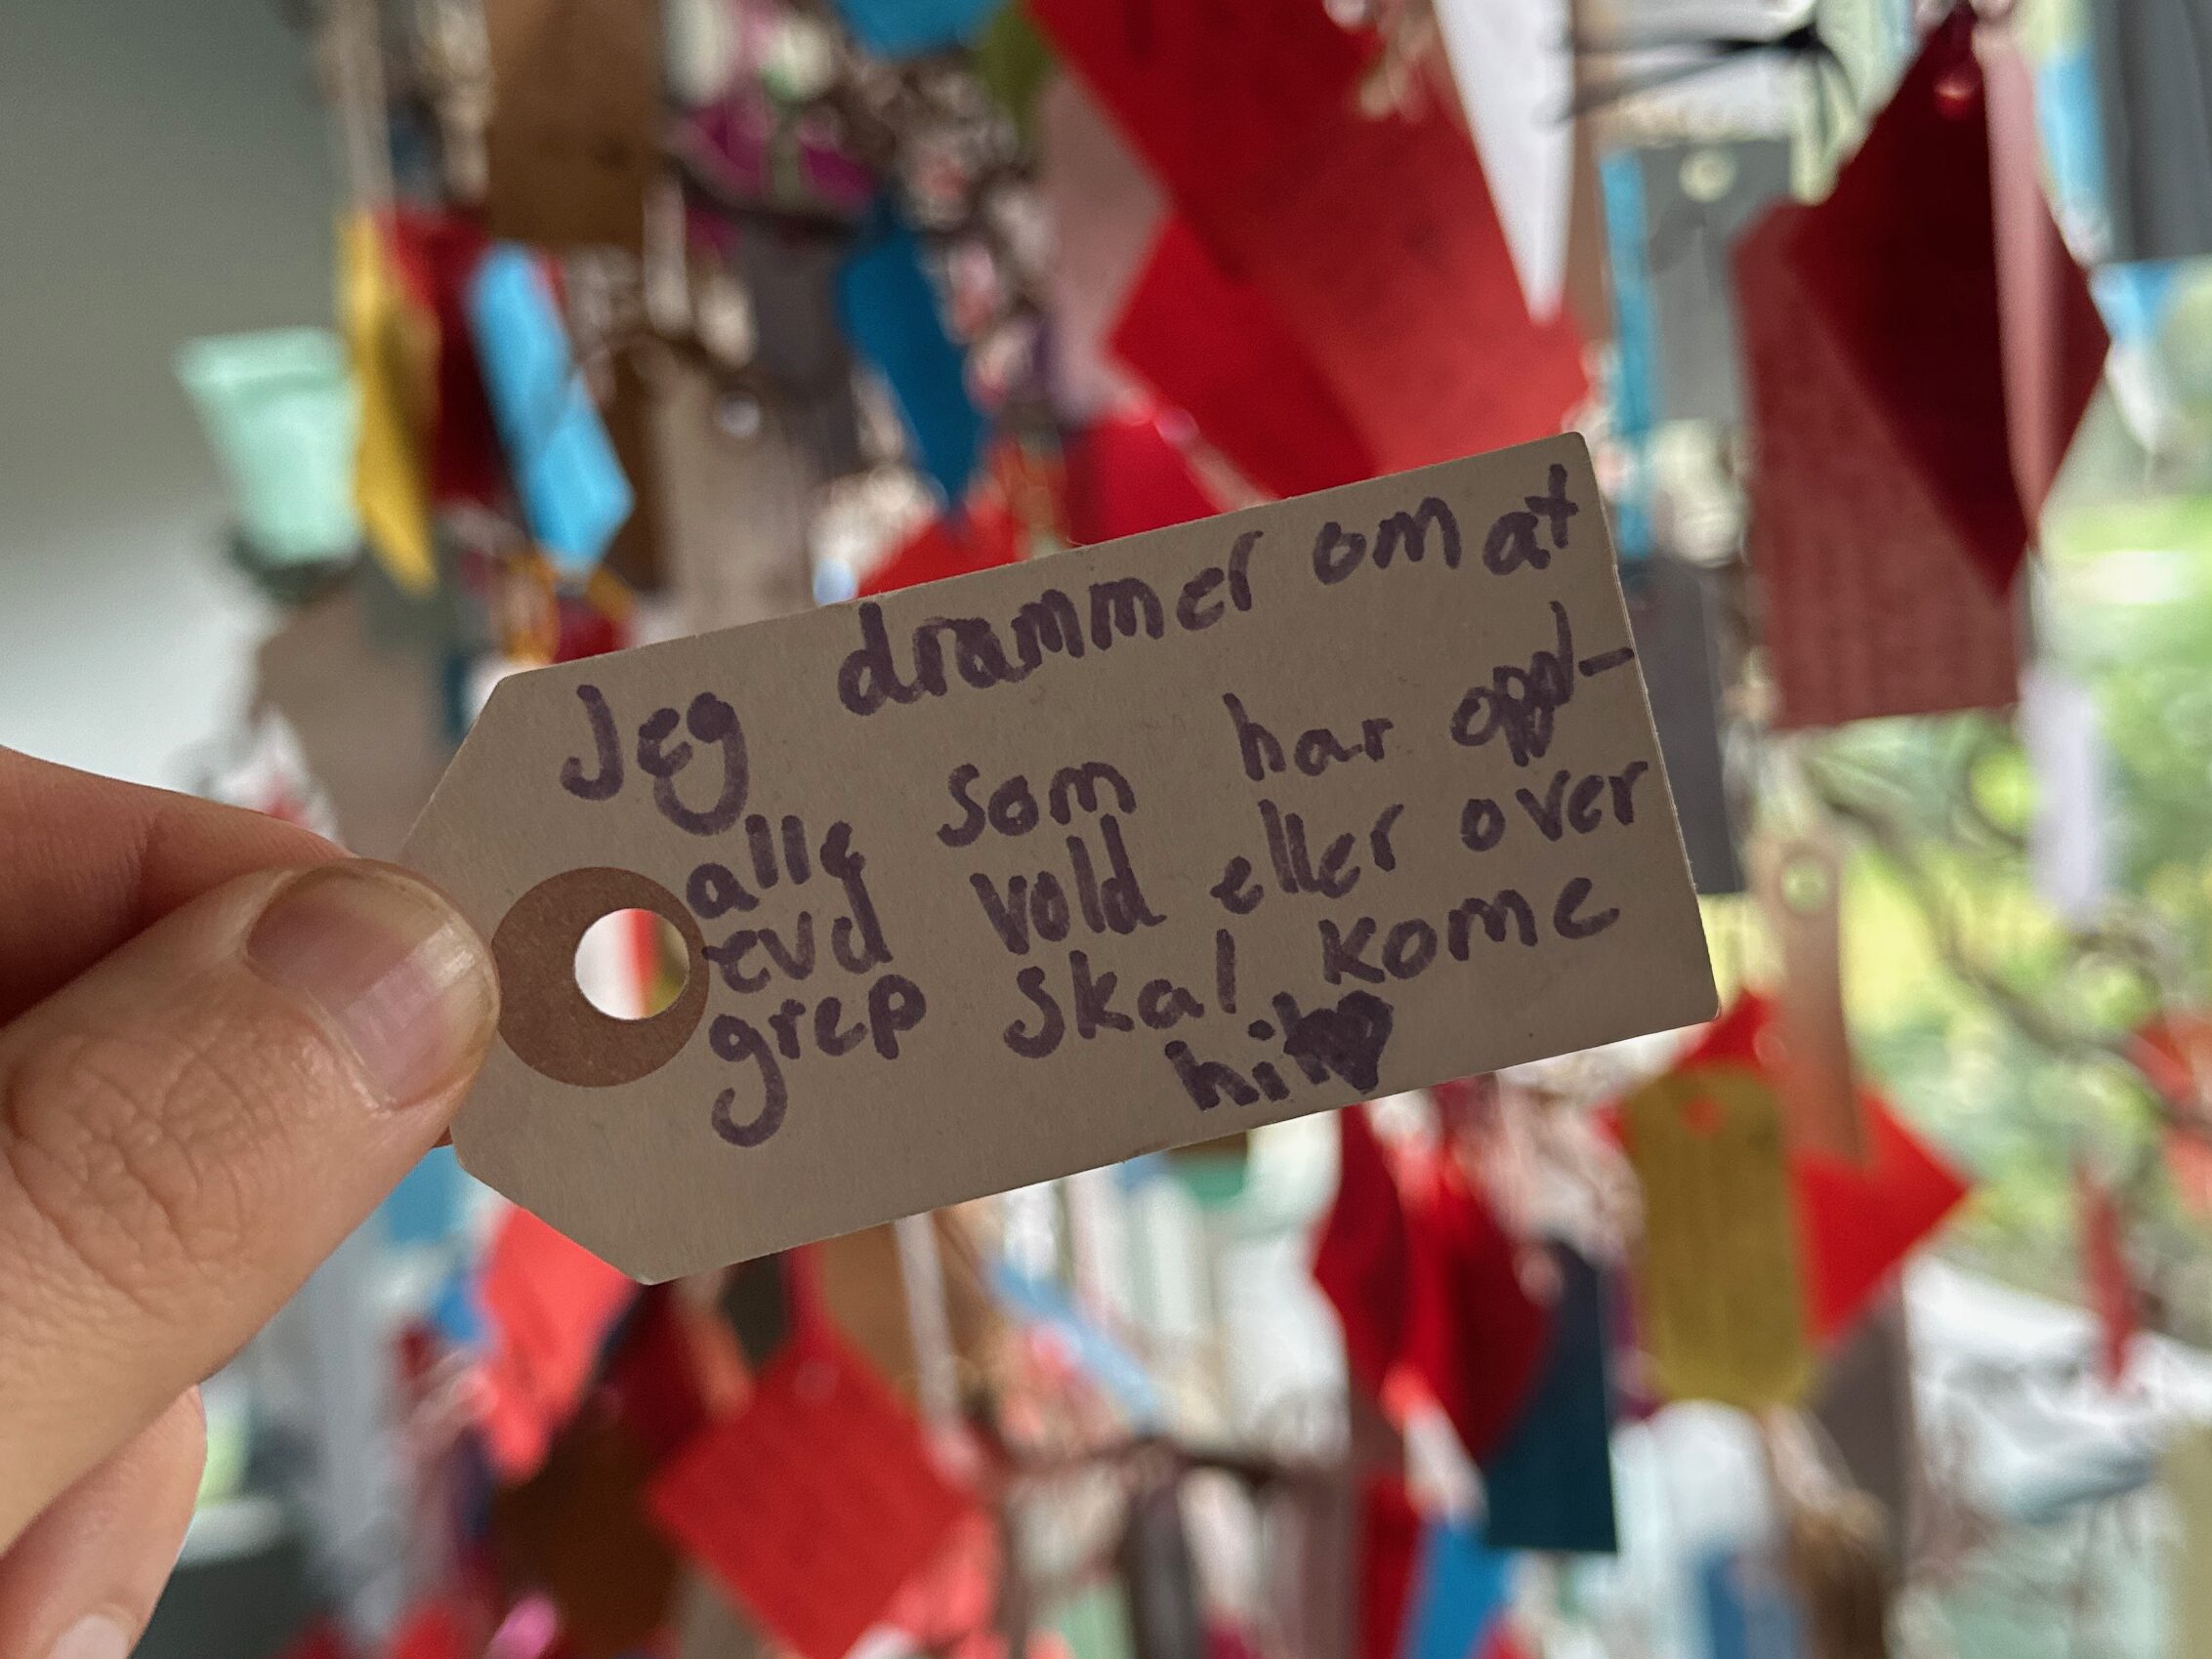 Jeg drømmer om at
alle som har oppl-
evd vold eller over
grep skal kome
hit♥